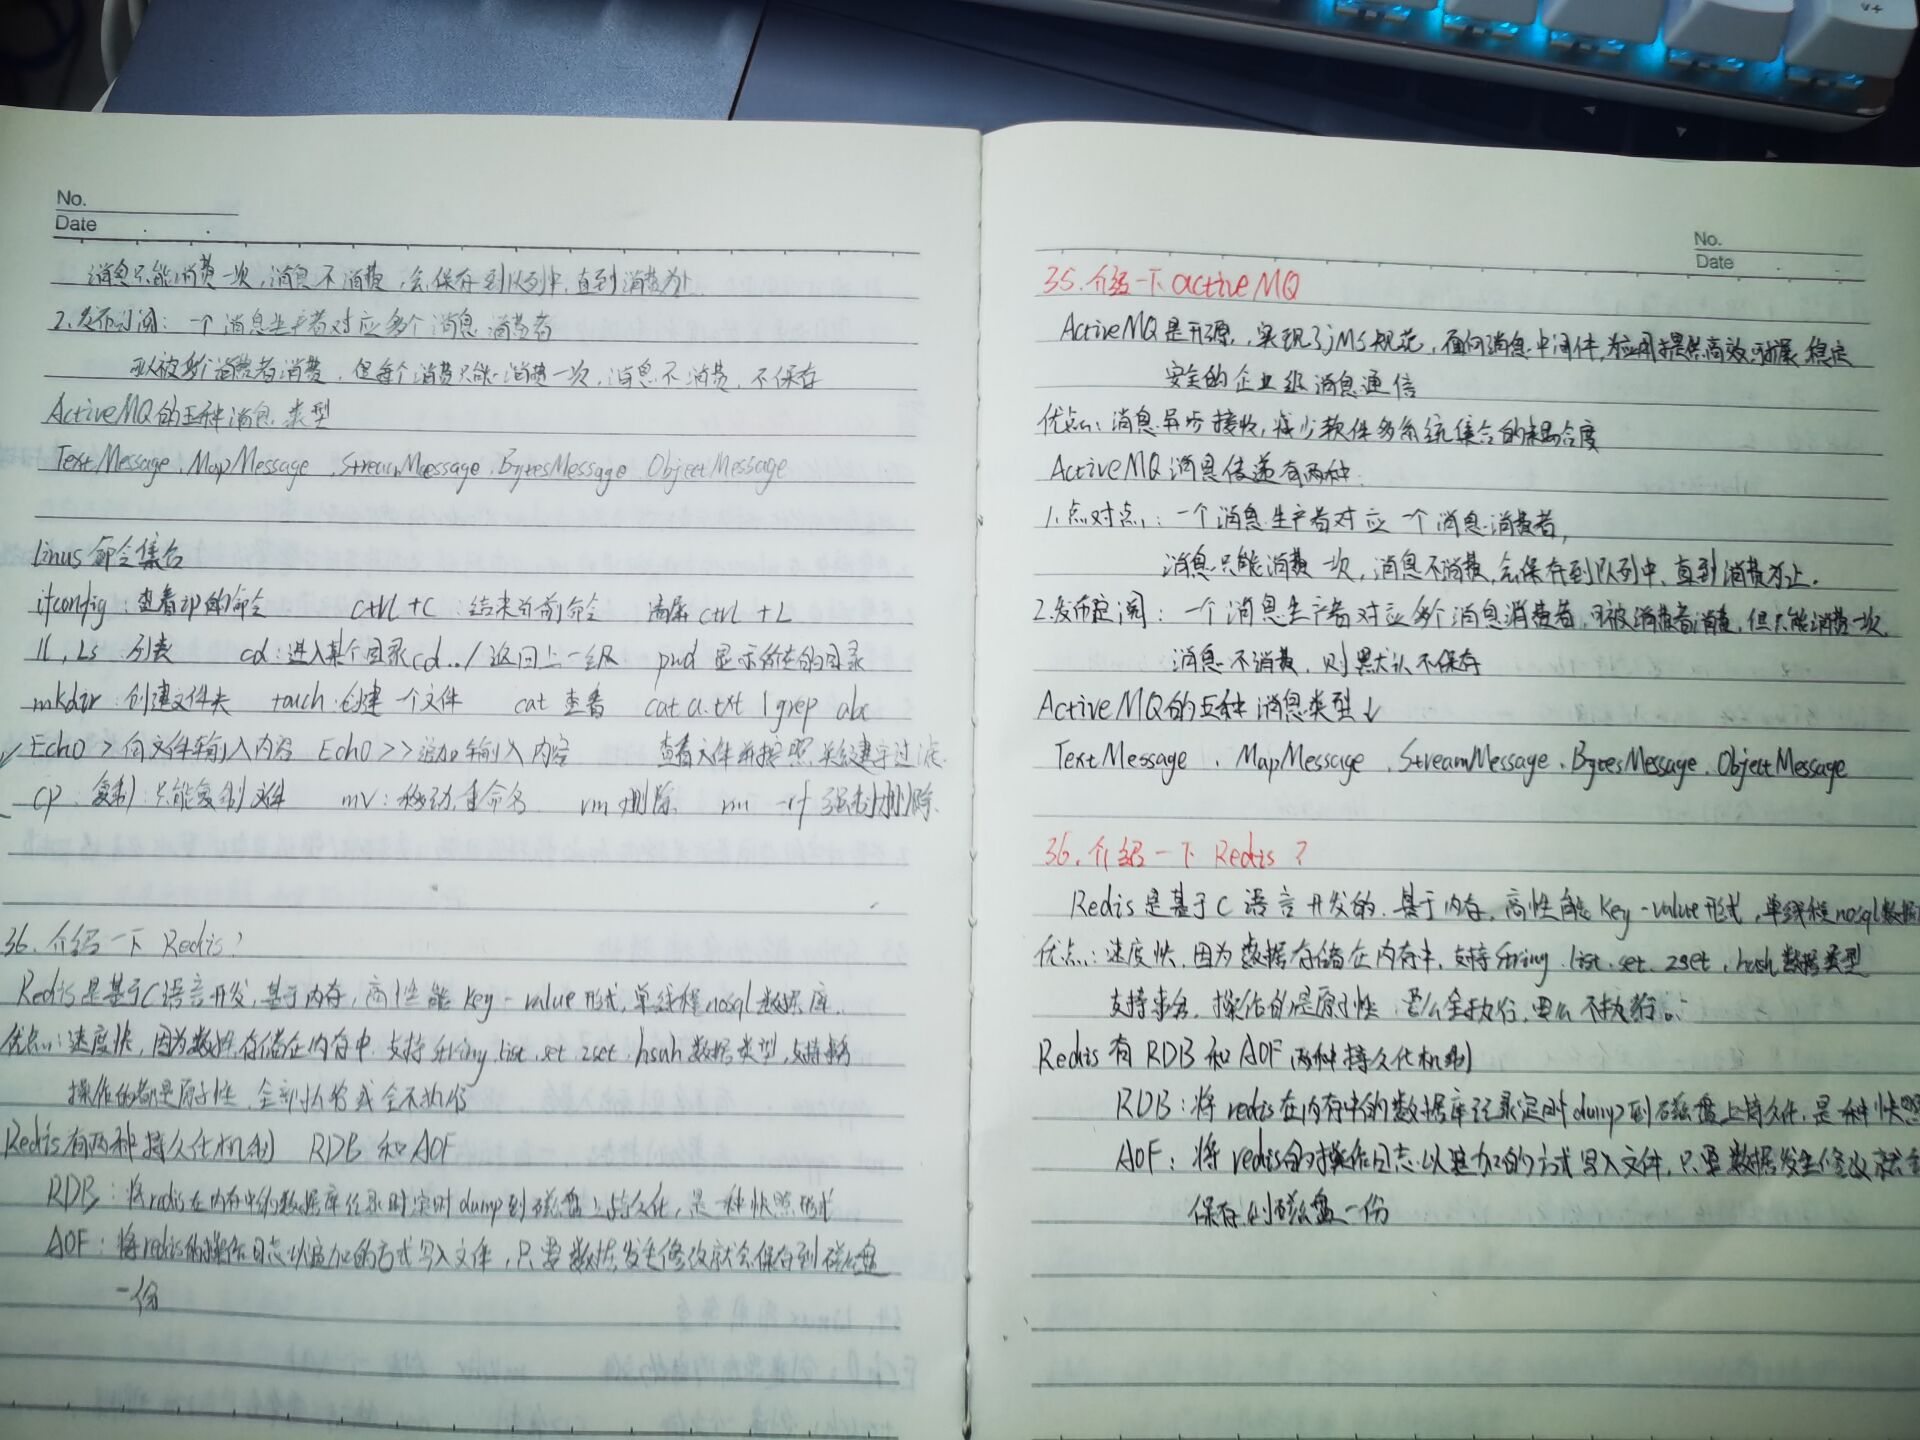 No.
Date
消息只能消费一次,消息不消费,会保存到队列中,直到消费为止.
2.发布订阅: 一个消息生产者对应多个消息消费者
可以被多个消费者消费,但每个消费只能消费一次,消息不消费,不保存
ActiveMQ的五种消息类型
TextMessage、MapMessage、StreamMeessage、BytesMessage ObjectMessage
linus命令集合
ifconfig:查看ip的命令 ctrl+C:结束当前命令 清屏ctrl+L
ll,Ls 列表 cd:进入某个目录cd../返回上一级 pwd 显示所在的目录
mkdir:创建文件夹 touch:创建一个文件 cat 查看 cat a.txt | grep abc
Echo > 向文件输入内容 Echo >> 追加输入内容 查看文件并按照关键字过滤.
cp:复制:只能复制文件 mv:移动,重命名 rm 删除 rm -rf 强制删除.
36.介绍一下 Redis?
Redis是基于C语言开发,基于内存,高性能key-value形式,单线程nosql数据库.
优点:速度快,因为数据存储在内存中.支持string.list.set.zset.hsah数据类型,支持事务
操作的都是原子性,全部执行或全不执行
Redis有两种持久化机制 RDB和AOF
RDB:将redis在内存中的数据库记录定时dump到磁盘上持久化,是一种快照形式
AOF:将redis的操作日志以追加的方式写入文件,只要数据发生修改就会保存到磁盘
一份
No.
Date
35.介绍一下activeMQ
ActiveMQ是开源,实现了jMS规范,面向消息中间件,为应用提供高效可扩展 稳定
安全的企业级消息通信
优点:消息异步接收,减少软件多系统集合的耦合度
ActiveMQ消息传递有两种:
1.点对点:一个消息生产者对应一个消息消费者,
消息只能消费一次,消息不消费,会保存到队列中,直到消费为止.
2.发布定阅:一个消息生产者对应多个消息消费者,可被消费者消费,但只能消费一次.
消息不消费,则默认不保存
ActiveMQ的五种消息类型↓
TextMessage、MapMessage、StreamMessage、BytesMessage、ObjectMessage
36.介绍一下 Redis?
Redis是基于C语言开发的.基于内存,高性能key-value形式,单线程nosql数据
优点:速度快,因为数据存储在内存中,支持string.list.set.zset.hash数据类型
支持事务,操作的是原子性:要么全执行,要么不执行。
Redis有RDB和AOF两种持久化机制
RDB:将redis在内存中的数据库记录定时dump到磁盘上持久化,是一种快照
AOF:将redis的操作日志以追加的方式写入文件,只要数据发生修改就会
保存到磁盘一份